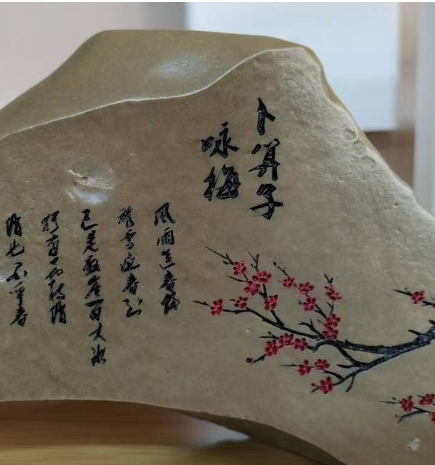 卜算子
咏梅
风雨送春归
飞雪迎春到
已是悬崖百丈冰
犹有花枝俏
俏也不争春